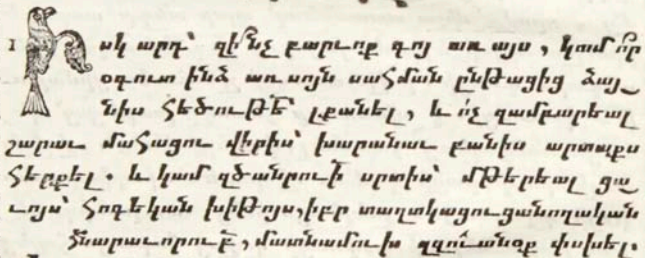 1 Իսկ արդ՝ զի՞նչ բարւոք գոյ առ այս, կամ ո՞ր
օգուտ ինձ առ սոյն սահման ընթացից ձայ֊
նիս հեծութե՟՝ լքանել, և ո՛չ զամբարեալ
շարաւ մահացու վիրիս՝ խարանաւ բանիս արտաքս
հերքել. և կամ զծանրու՟ի սրտիս՝ մթերեալ ցա
ւոյս՝ հոգեկան խիթոյս, իբր տաղտկացուցանողական
հնարաւորու՟բ, մատնամուխ զզուանօք փսխել.